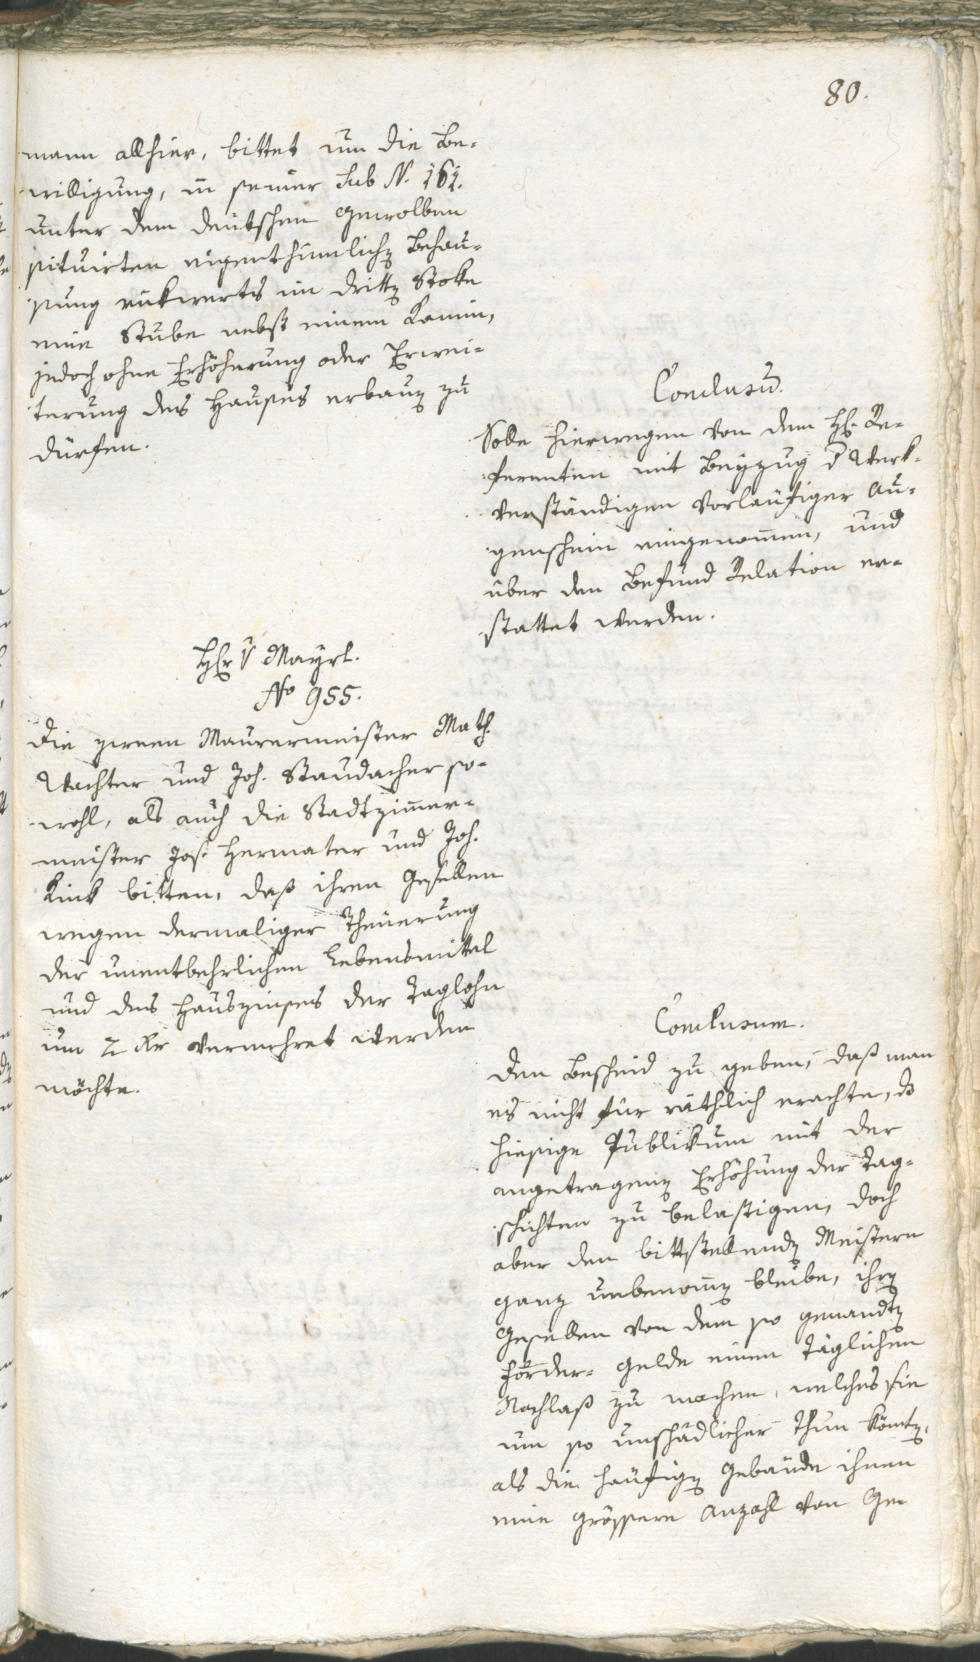 80.
mann allhier, bittet um die Be-
willigung, in seiner sub N. 161.
unter dem deutschen Gewölben
situirten eigenthümlichen Behau-
sung rükwerts im dritten Stoke
eine Stube nebst einem Kamin,
jedoch ohne Erhöherung oder Erwei-
terung des Hauses erbauen zu
dürfen.
Conclusum.
Solle hierwegen von dem H: Re-
ferenten mit Beyzug der Werk-
verständigen vorläufiger Au-
genschein eingenommen, und
über den Befund Relation er-
stattet werden.
Hr: v Mayrl.
No 955.
Die zween Maurermeister Math.
Wachter und Joh. Staudacher so-
wohl, als auch die Stadtzimmer-
meister Jos. Hermater und Joh.
Kink bitten, daß ihren Gesellen
wegen dermaliger Theuerung
der unentbehrlichen Lebensmittel
und des Hauszinses der Taglohn
um 2 Kr vermehret werden
möchte.
Conclusum.
Den Bescheid zu geben, daß man
es nicht für räthlich erachte, das
hiesige Publikum mit der
angetragenen Erhöhung der Tag-
schichten zu belästigen, doch
aber den bittstellenden Meistern
ganz unbenommen bleibe, ihren
Gesellen von dem so genandten
Förder-Gelde einen täglichen
Nachlaß zu machen, welches sie
um so unschädlicher thun könten,
als die häufigen Gebäude ihnen
eine grössere Anzahl von Ge-